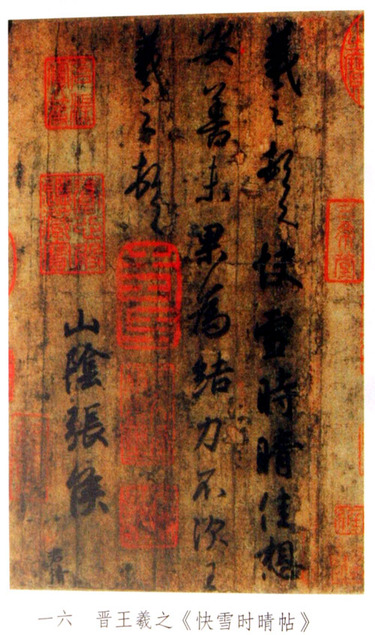 羲之頓首快雪時晴佳想
安善未果為結力不次王
羲之頓首
山陰張侯
一六　晋王羲之《快雪时晴帖》